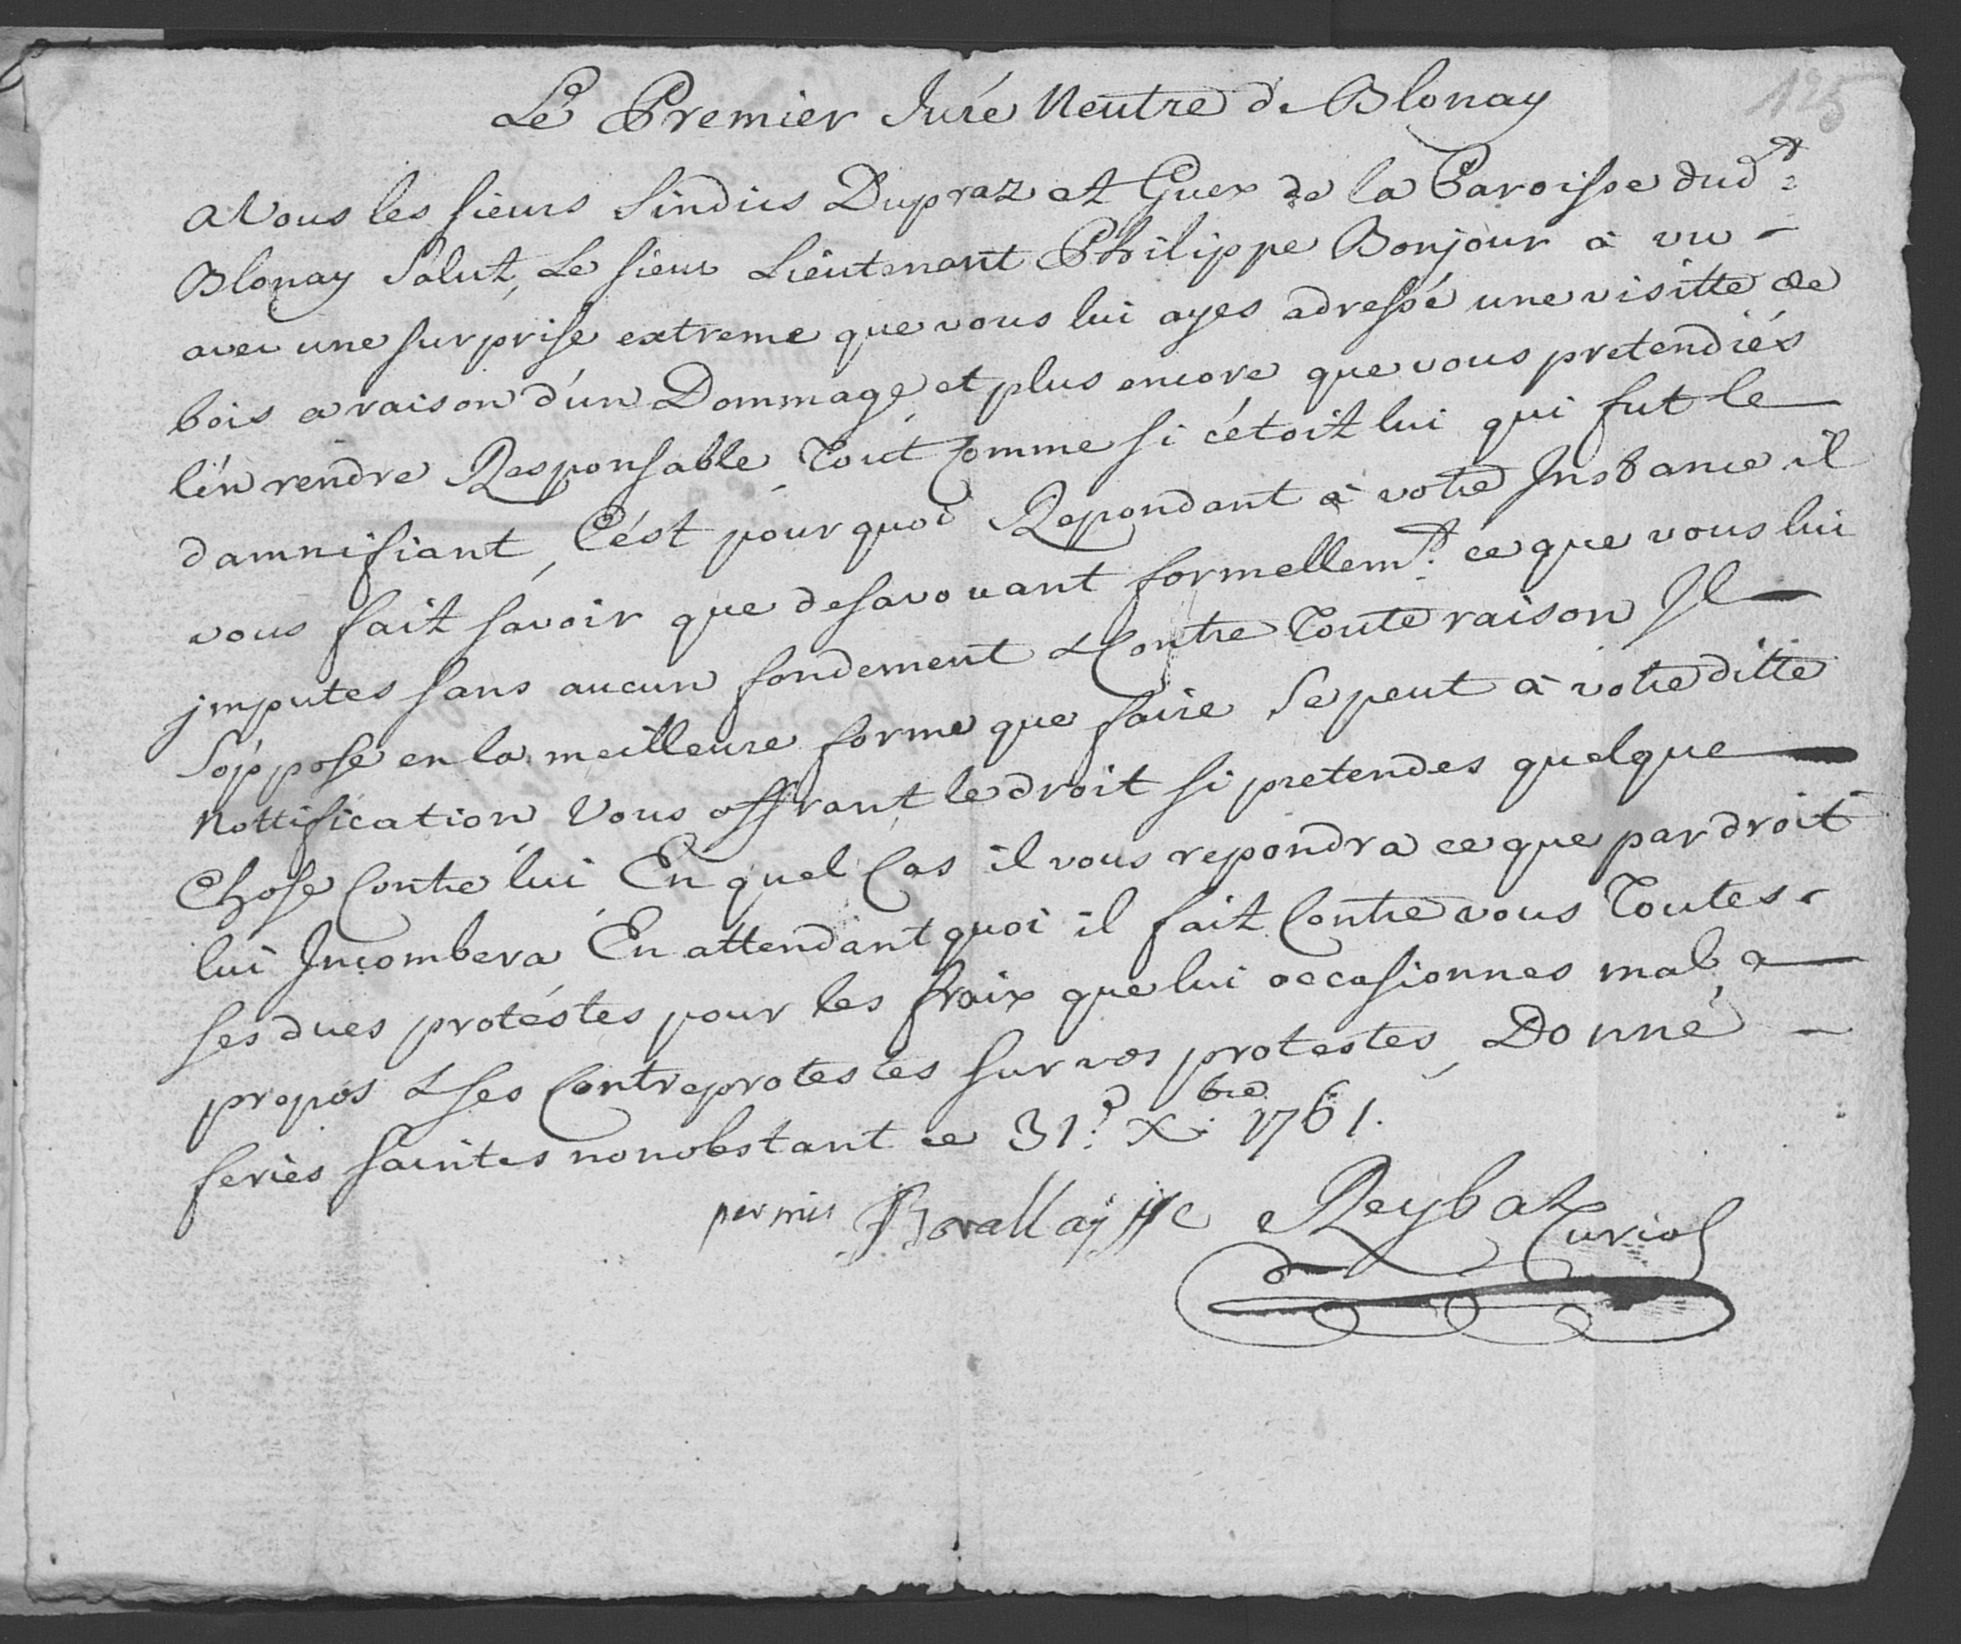 125
Le Premier Juré Neutre de Blonay
A Vous les sieurs Sindics Dupraz et Guex de la Paroisse dudt
Blonay Salut, Le sieur Lieutenant Philippe Bonjour à vu
avec une surprise extreme que vous lui ayes adressé une visitte de
bois a raison d'un Dommage et plus encore que vous pretendiés
l'en rendre Responsable, Tout comme si c'étoit lui qui fut le
damnifiant, C'ést pourquoi Repondant à votre Instance il
vous fait savoir que desavouant formellemt. ce que vous lui
jmputes sans aucun fondement & Contre Toute raison Il
S'oppose en la meilleure forme que faire Se peut à votre ditte
Nottification Vous offrant le droit si pretendes quelque
Chose Contre lui, En quel Cas il vous repondra ce que par droit
lui Incombera En attendant quoi il fait Contre vous Toutes
ses dues protéstes pour les fraix que lui occasionnes mal a
propos & ses Contreprotestes sur vos protestes, Donné
feriés saintes nonobstant ce 31e. Xbre. 1761.
permis Reybaz Curial